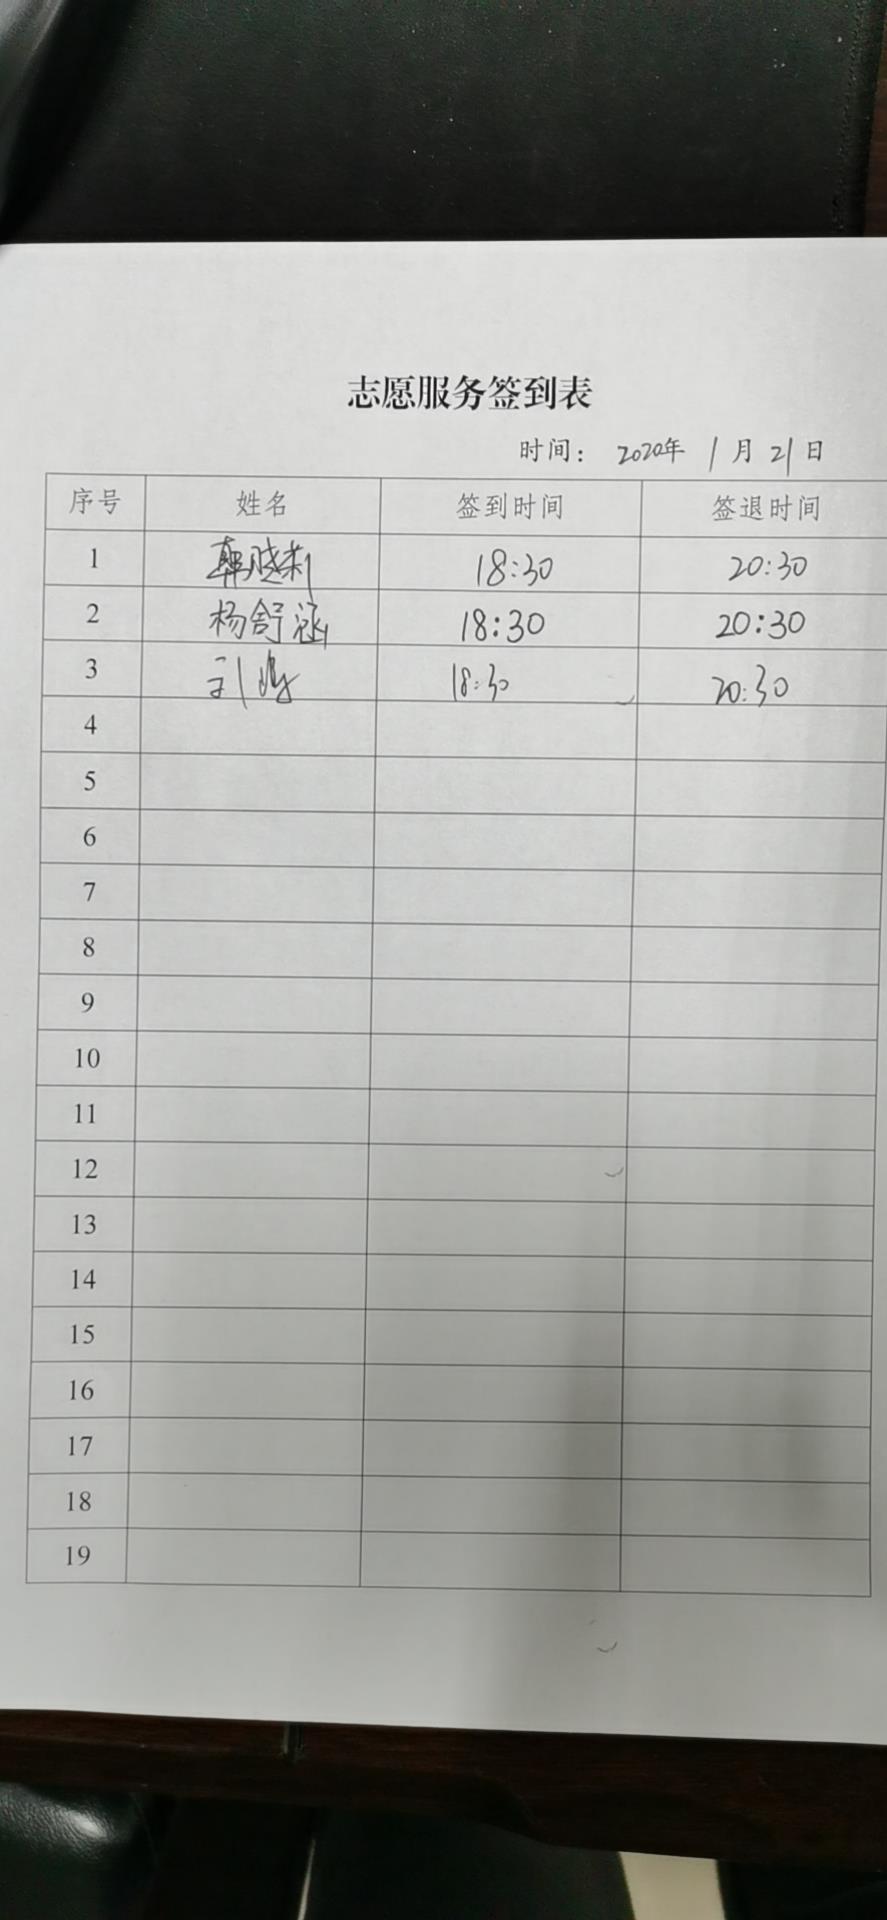 志愿服务签到表
时间： 2020年 1月21日
序号 姓名 签到时间 签退时间
1 韩晓莉 18:30 20:30
2 杨舒涵 18:30 20:30
3 刘 18:30 20:30
4
5
6
7
8
9
10
11
12
13
14
15
16
17
18
19